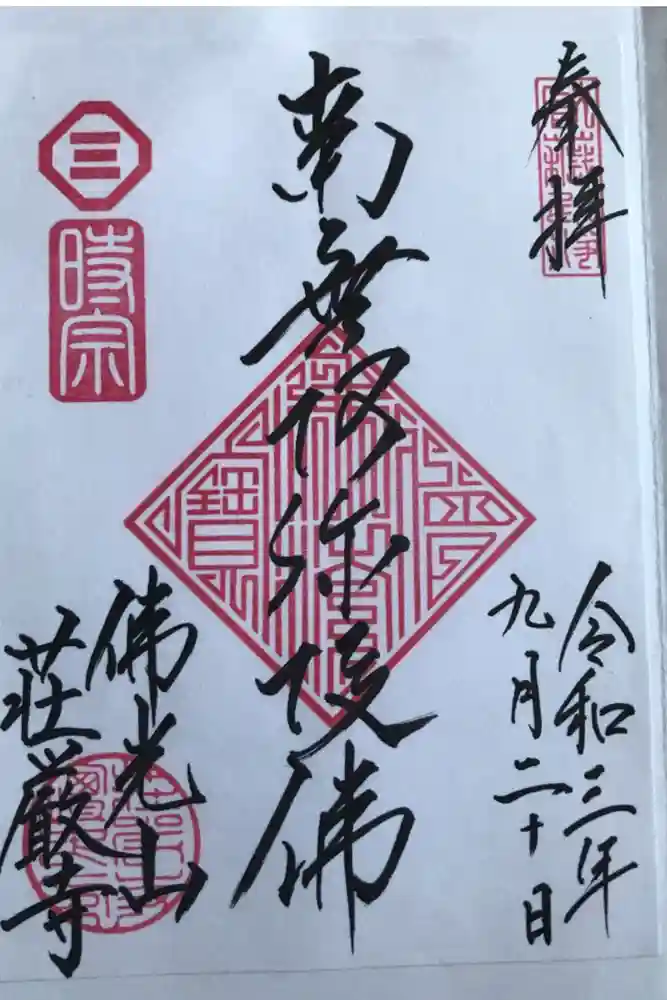 奉拝
令和三年
九月二十日
南無阿弥陀佛
佛光山
荘厳寺
三
時宗